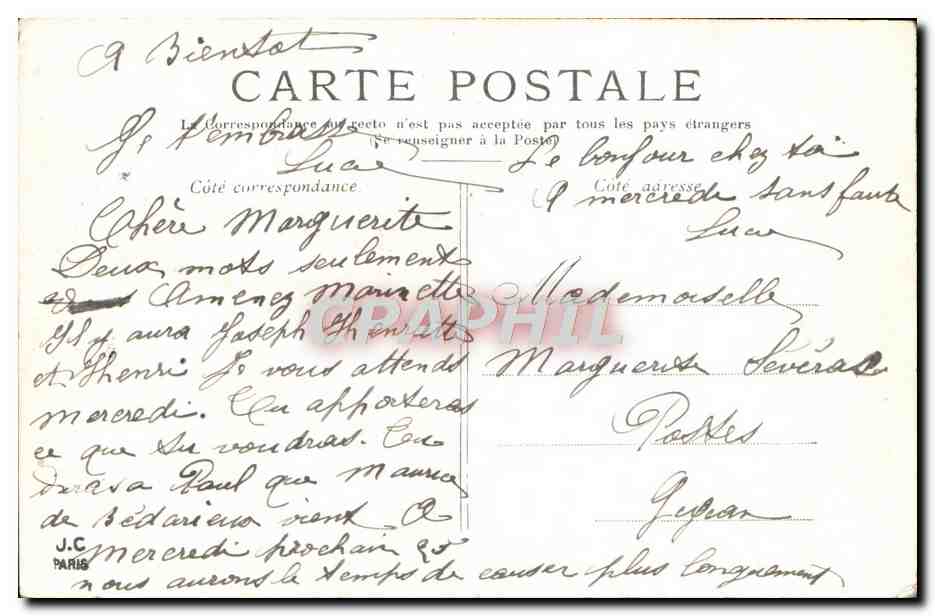 A Bientot
CARTE POSTALE
La Correspondance au recto n'est pas acceptée par tous les pays étrangers
(Se renseigner à la Poste)
Je t'embrasse
Lucie
Le bonjour chez toi
A mercredi sans faute
Lucie
Côté correspondance
Côté adresse
Chère Marguerite
Deux mots seulement
Amenez Marinette
Il y aura Joseph Henriette
et Henri Je vous attends
mercredi. Tu apporteras
ce que tu voudras. Tu
diras a Paul que Maurice
de Bédarieux vient A
Mercredi prochain 25
nous aurons le temps de causer plus longuement
Mademoiselle
Marguerite Sévérac
Postes
Gigean
CPARAPHIL
J.C
PARIS